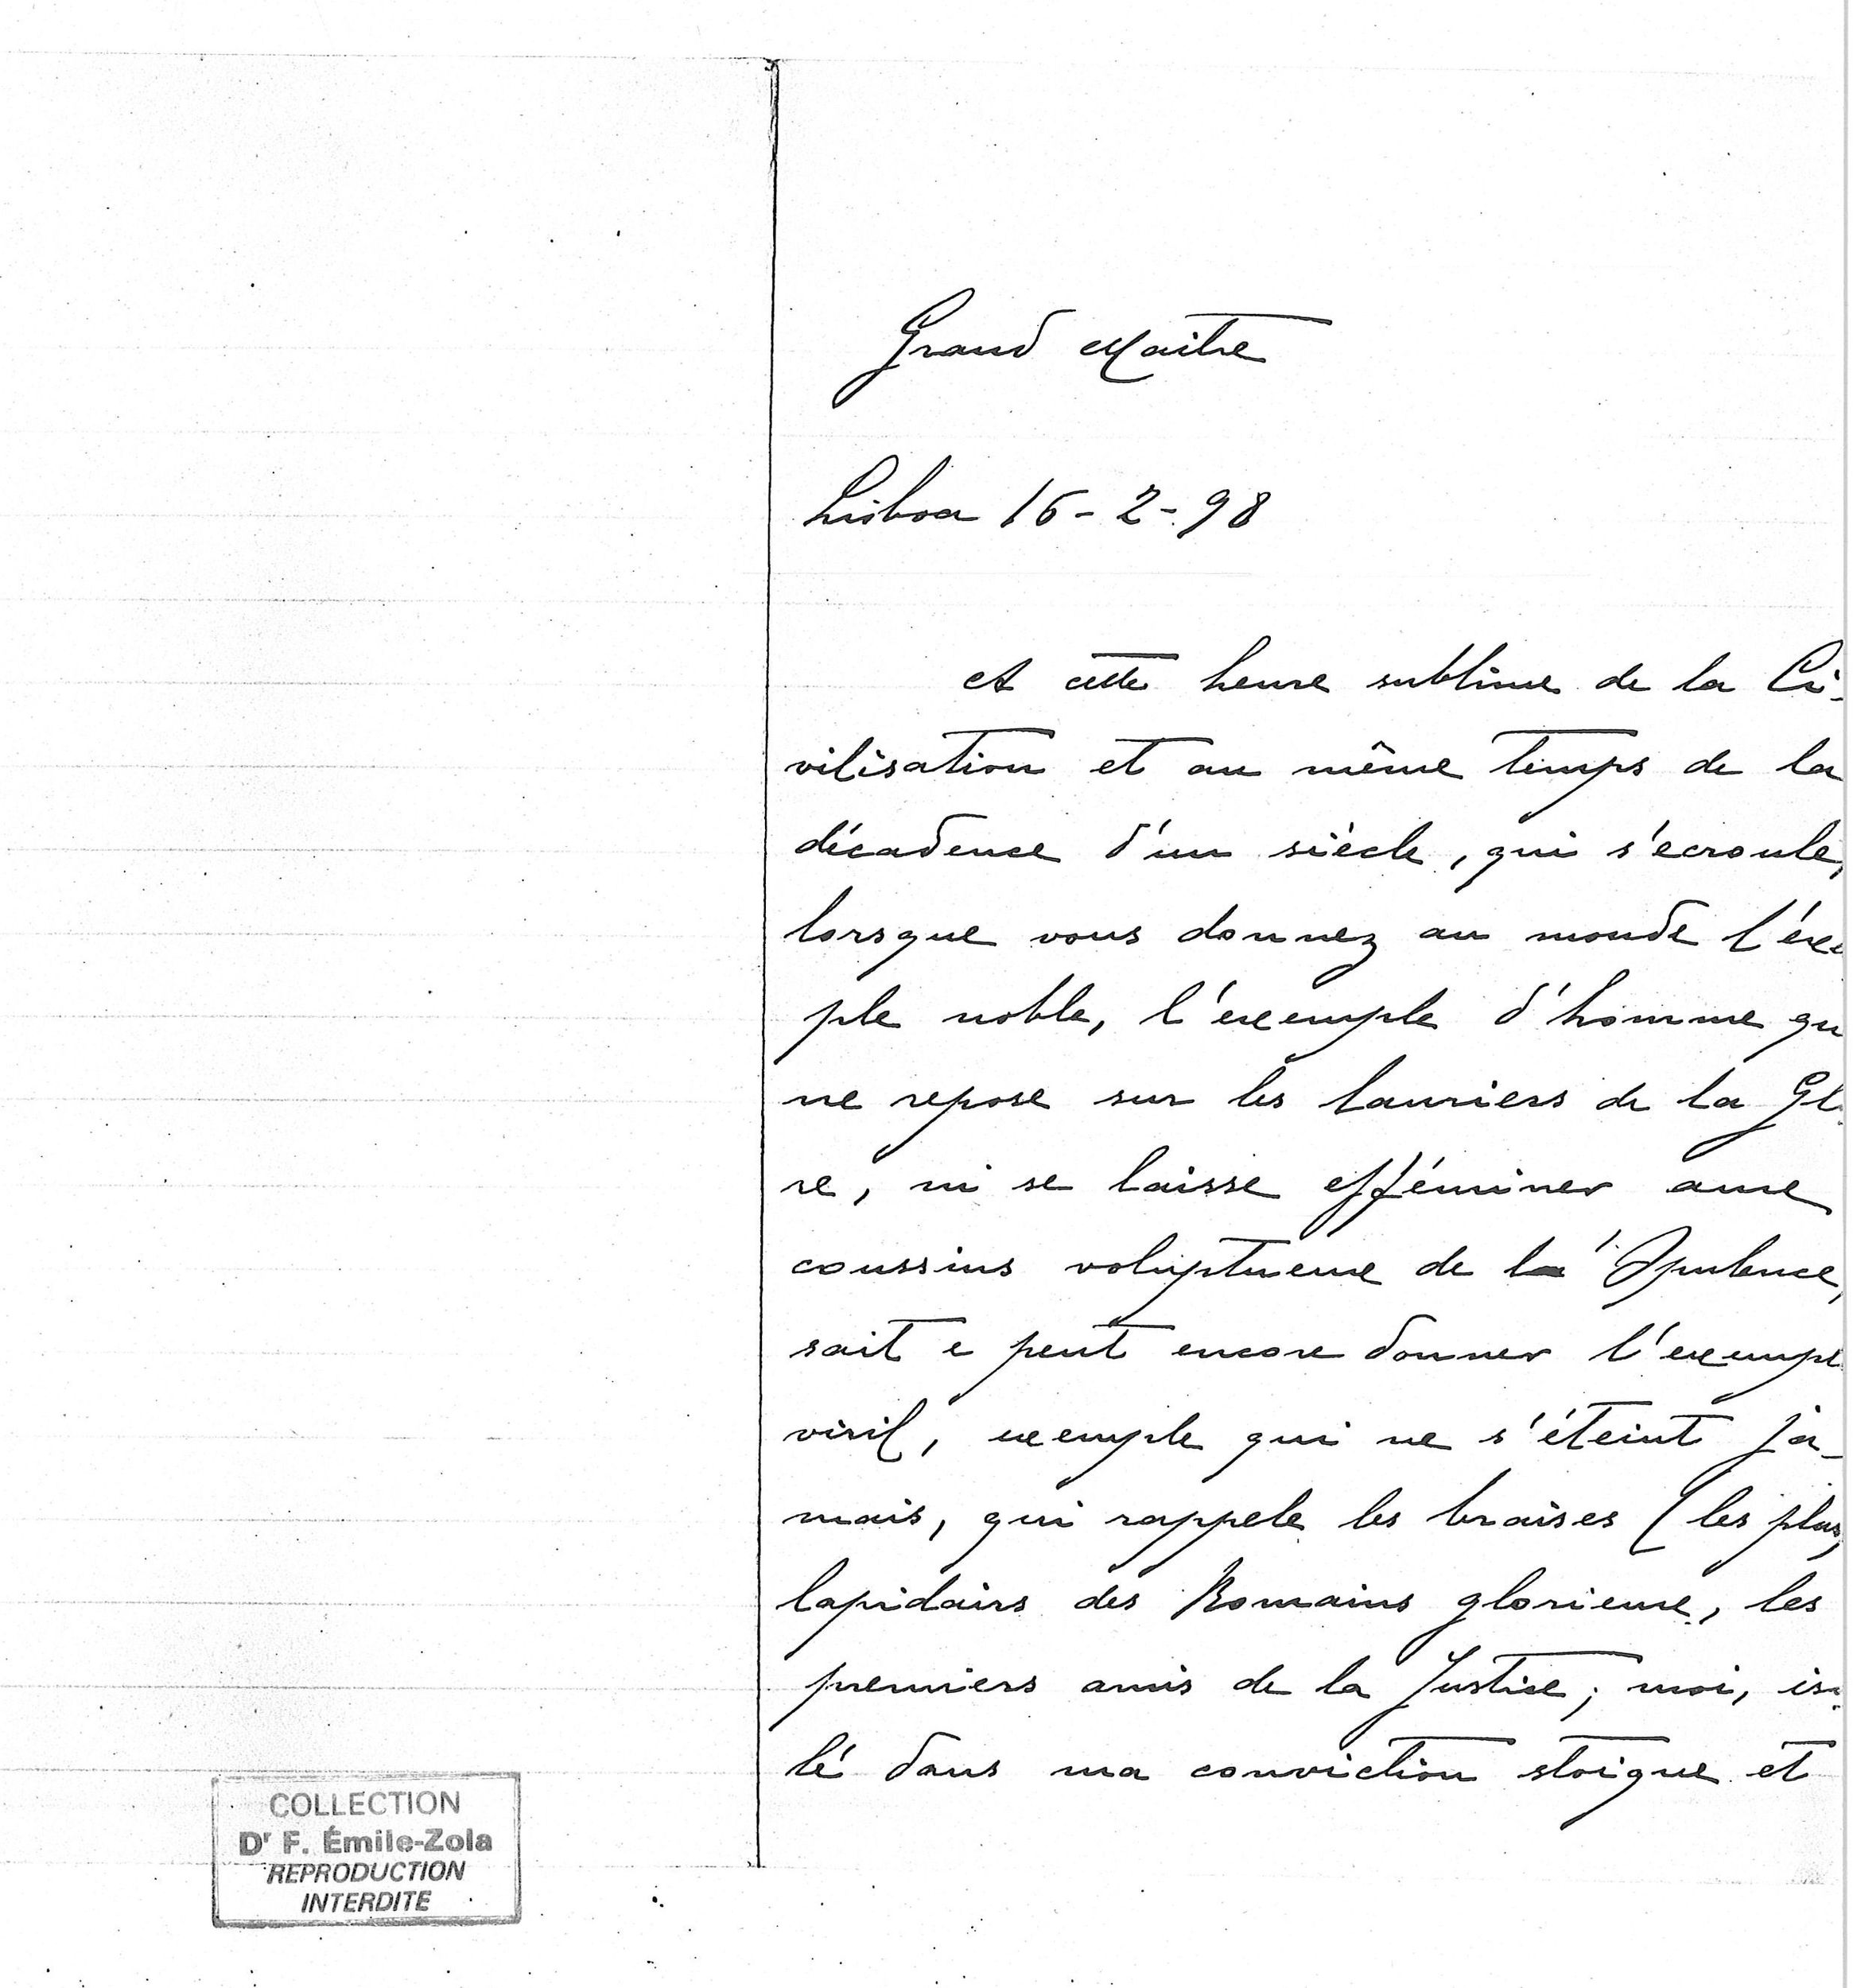 Grand Maitre
Lisboa 16-2-98
A cette heure sublime de la Ci-
vilisation et au même temps de la
décadence d'un siècle, qui s'écroule,
lorsque vous donnez au monde l'éxe
ple noble, l'exemple d'homme qu
ne repose sur les lauriers de la Gl
re, ni se laisse efféminer aux
coussins voluptueux de l'Opulence,
sait e peut encore donner l'exempl
viril, exemple qui ne s'éteint ja-
mais, qui rappele les braises (les plus)
lapidairs des Romains glorieux, les
premiers amis de la Justice; moi, iso
lé dans ma conviction stoique et
COLLECTION
Dr F. Émile-Zola
REPRODUCTION
INTERDITE